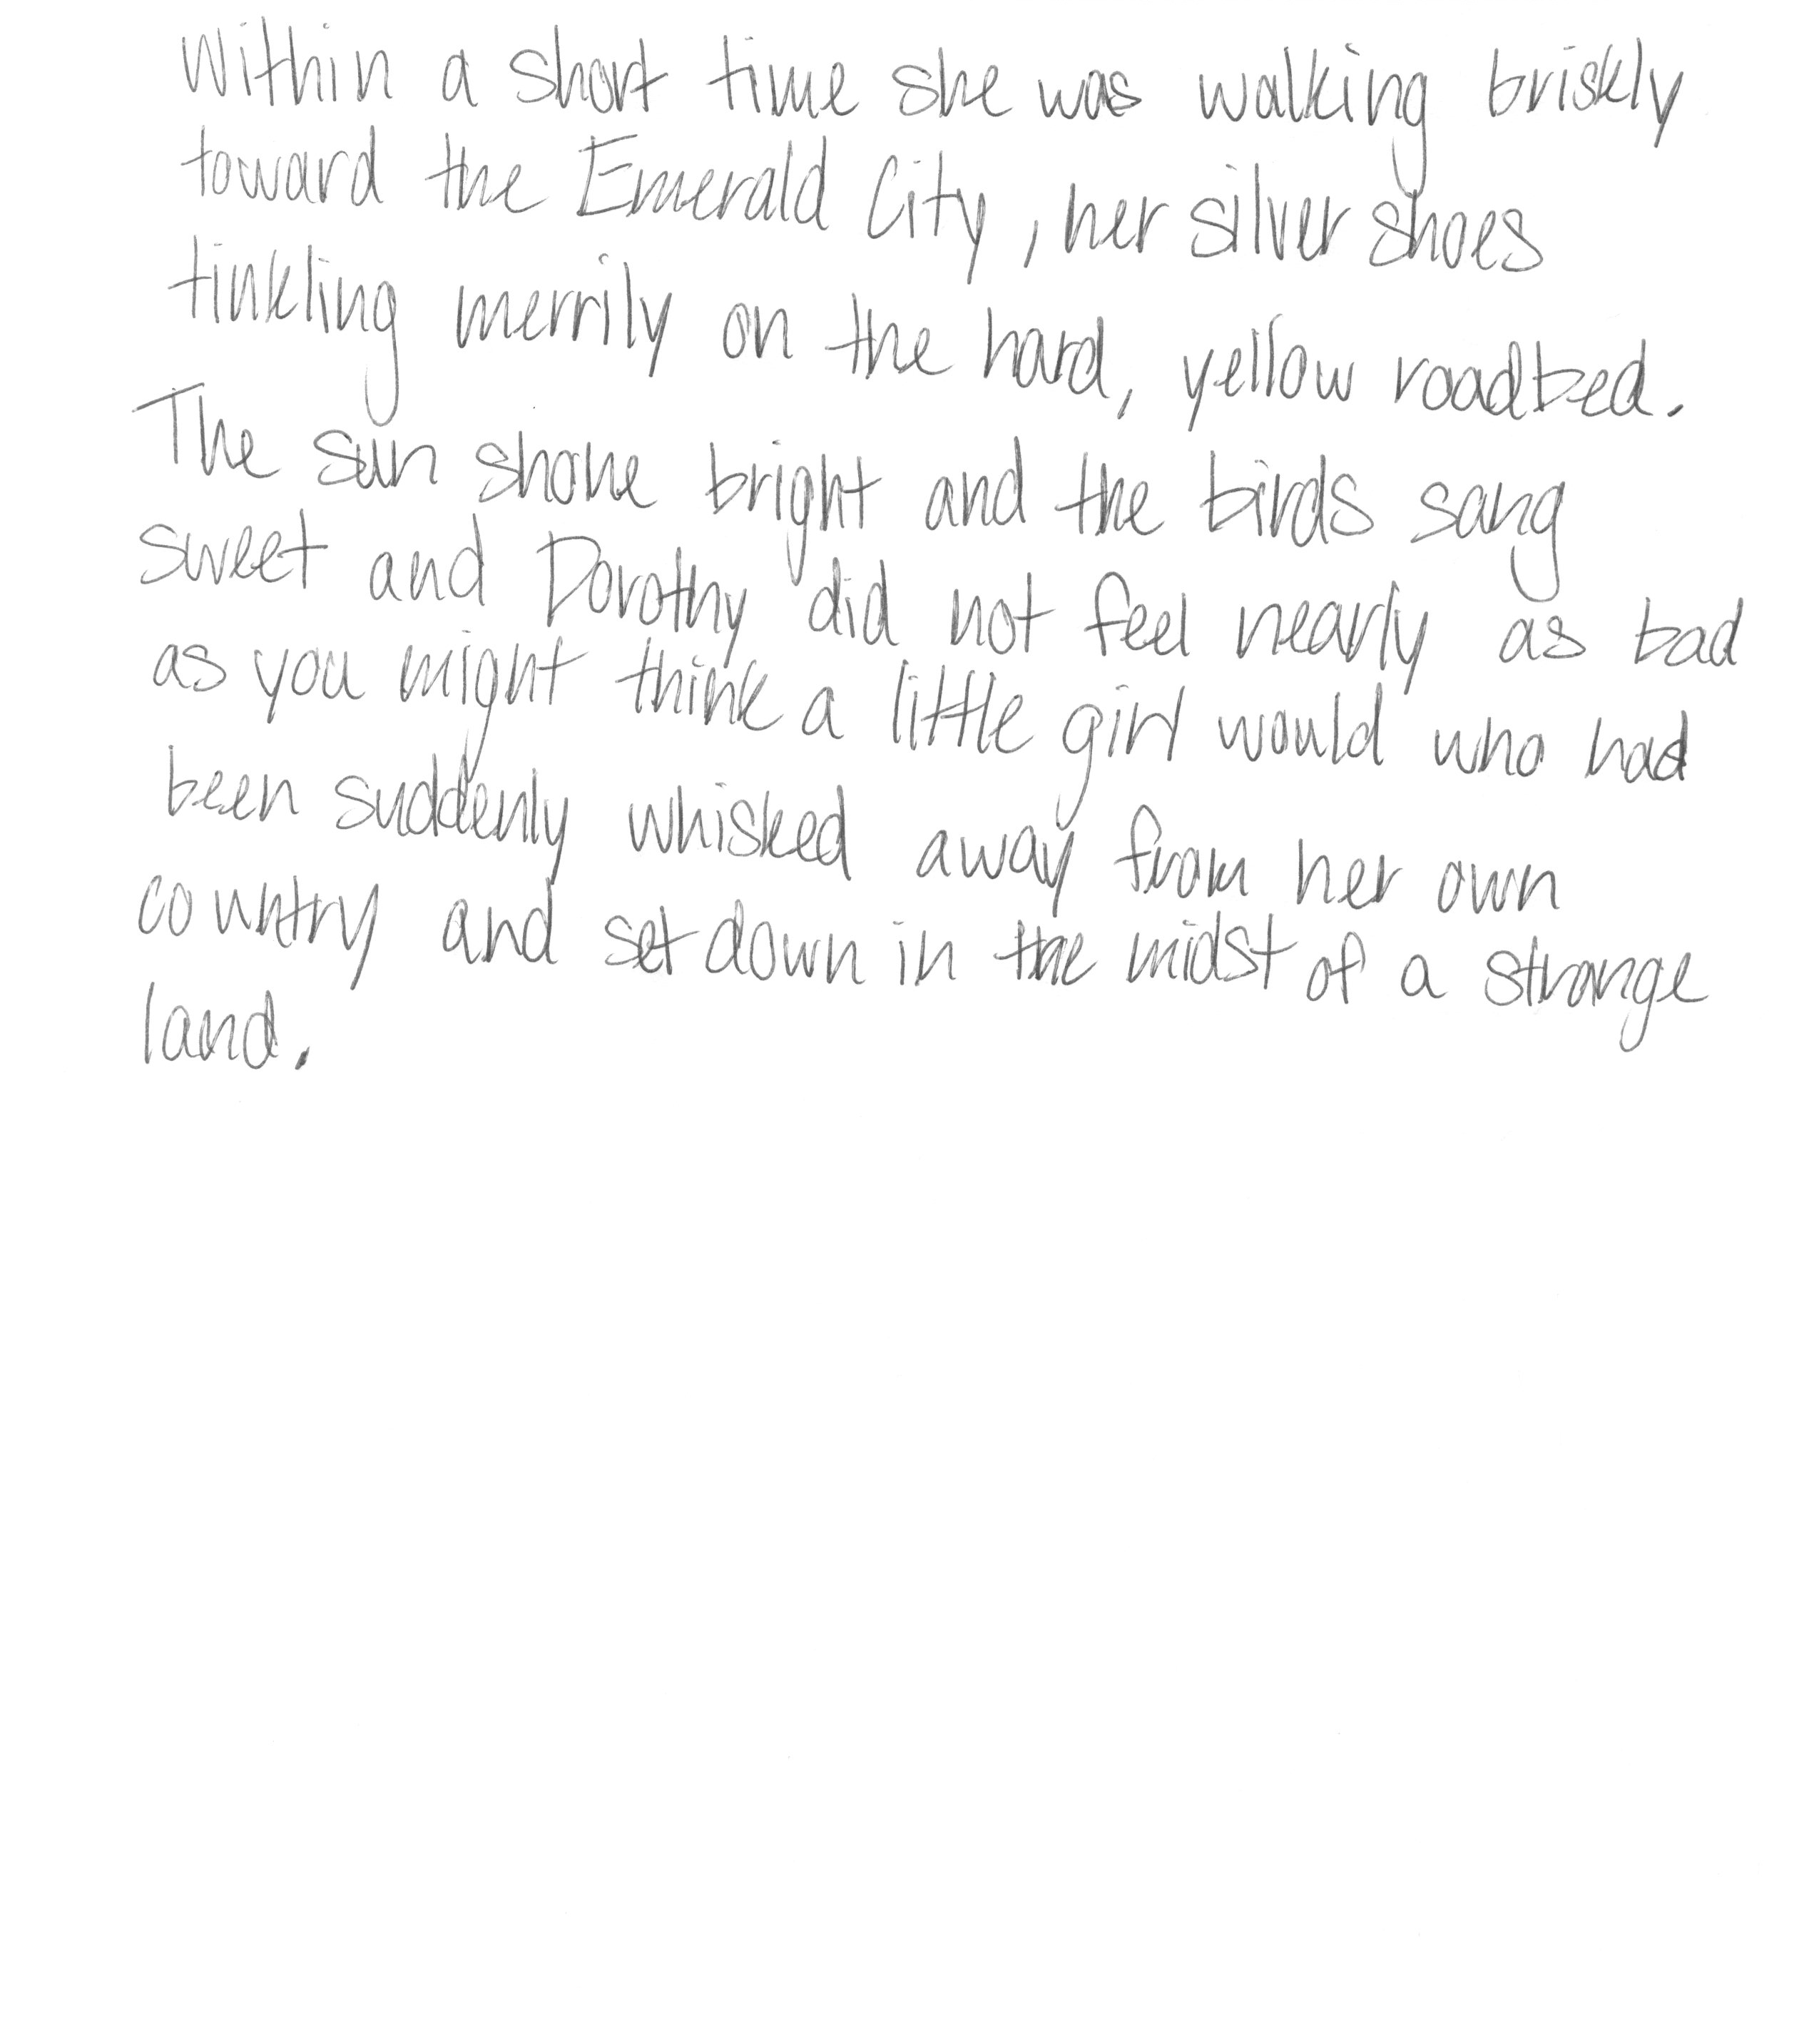 Within a short time she was walking briskly
toward the Emerald City, her silver shoes
tinkling merrily on the hard, yellow roadbed.
The sun shone bright and the birds sang
sweet and Dorothy did not feel nearly as bad
as you might think a little girl would who had
been suddenly whisked away from her own
country and set down in the midst of a strange
land.